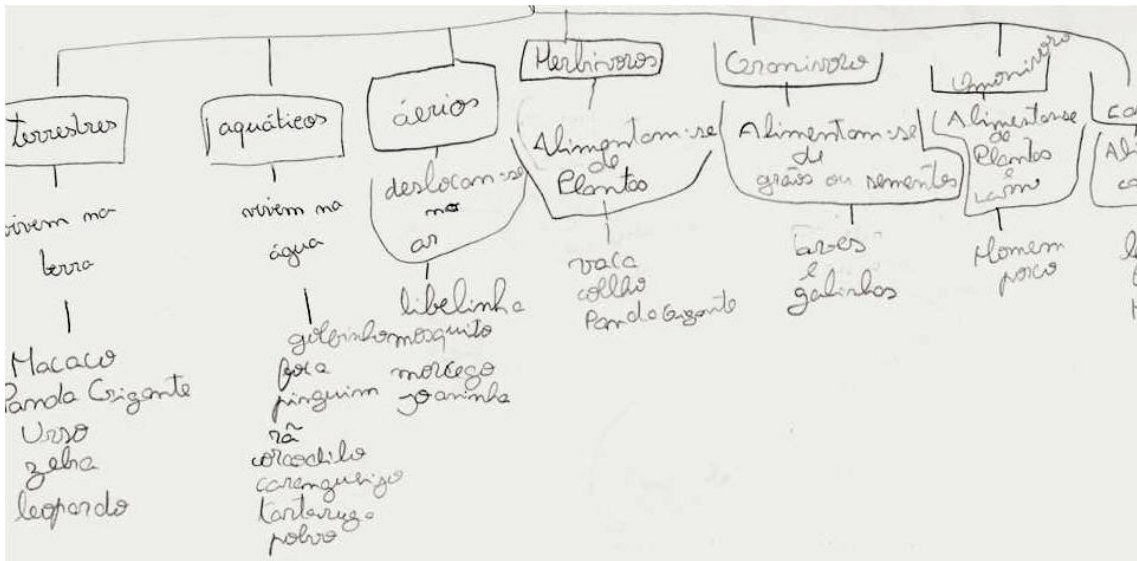 terrestres
vivem na
terra
Macaco
Panda Gigante
Urso
zebra
leopardo
aquáticos
vivem na
água
golfinho
foca
pinguim
rã
crocodilo
carangueijo
tartaruga
polvo
áerios
deslocam-se
no
ar
libelinha
mosquito
morcego
joaninha
Herbívoros
Alimentam-se
de
Plantas
vaca
coelho
Panda Gigante
Granívoro
Alimentam-se
de
grãos ou sementes
aves
e
galinhas
Omonivoro
Alimentanse
de
Plantas
e
carne
Homem
porco